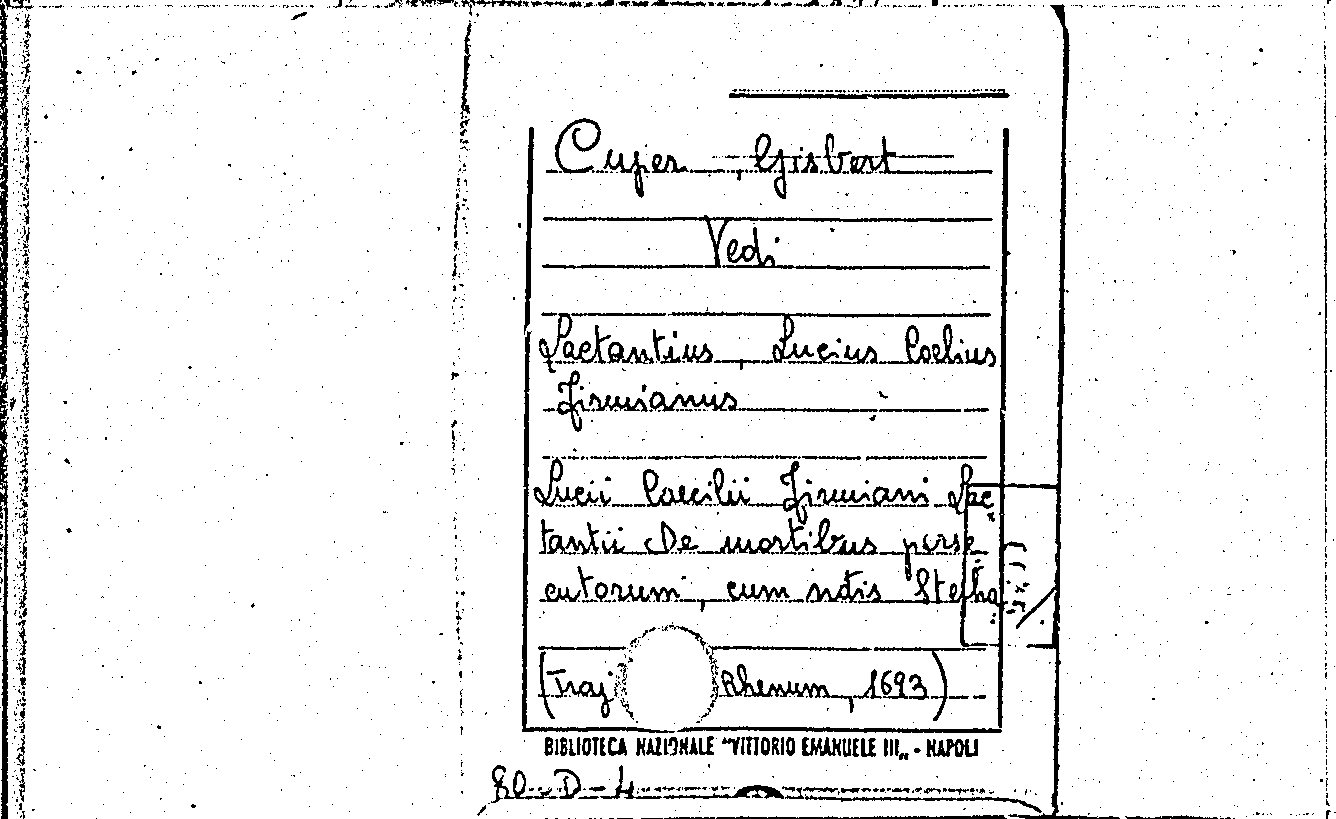 Cuper, Gisbert
Vedi
Lactantius, Lucius Coelius
Firmianus
Lucii Caecilii Firmiani Lac
tantii De mortibus perse
cutorum, cum notis Stepha
(Traj Rhenum, 1693)
BIBLIOTECA NAZIONALE "VITTORIO EMANUELE III„ - NAPOLI
80-D-4